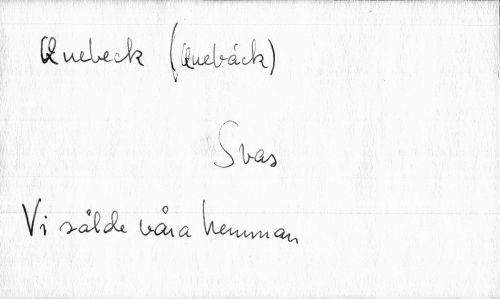 Quebeck (Quebäck)
Svas
Vi sålde våra hemman